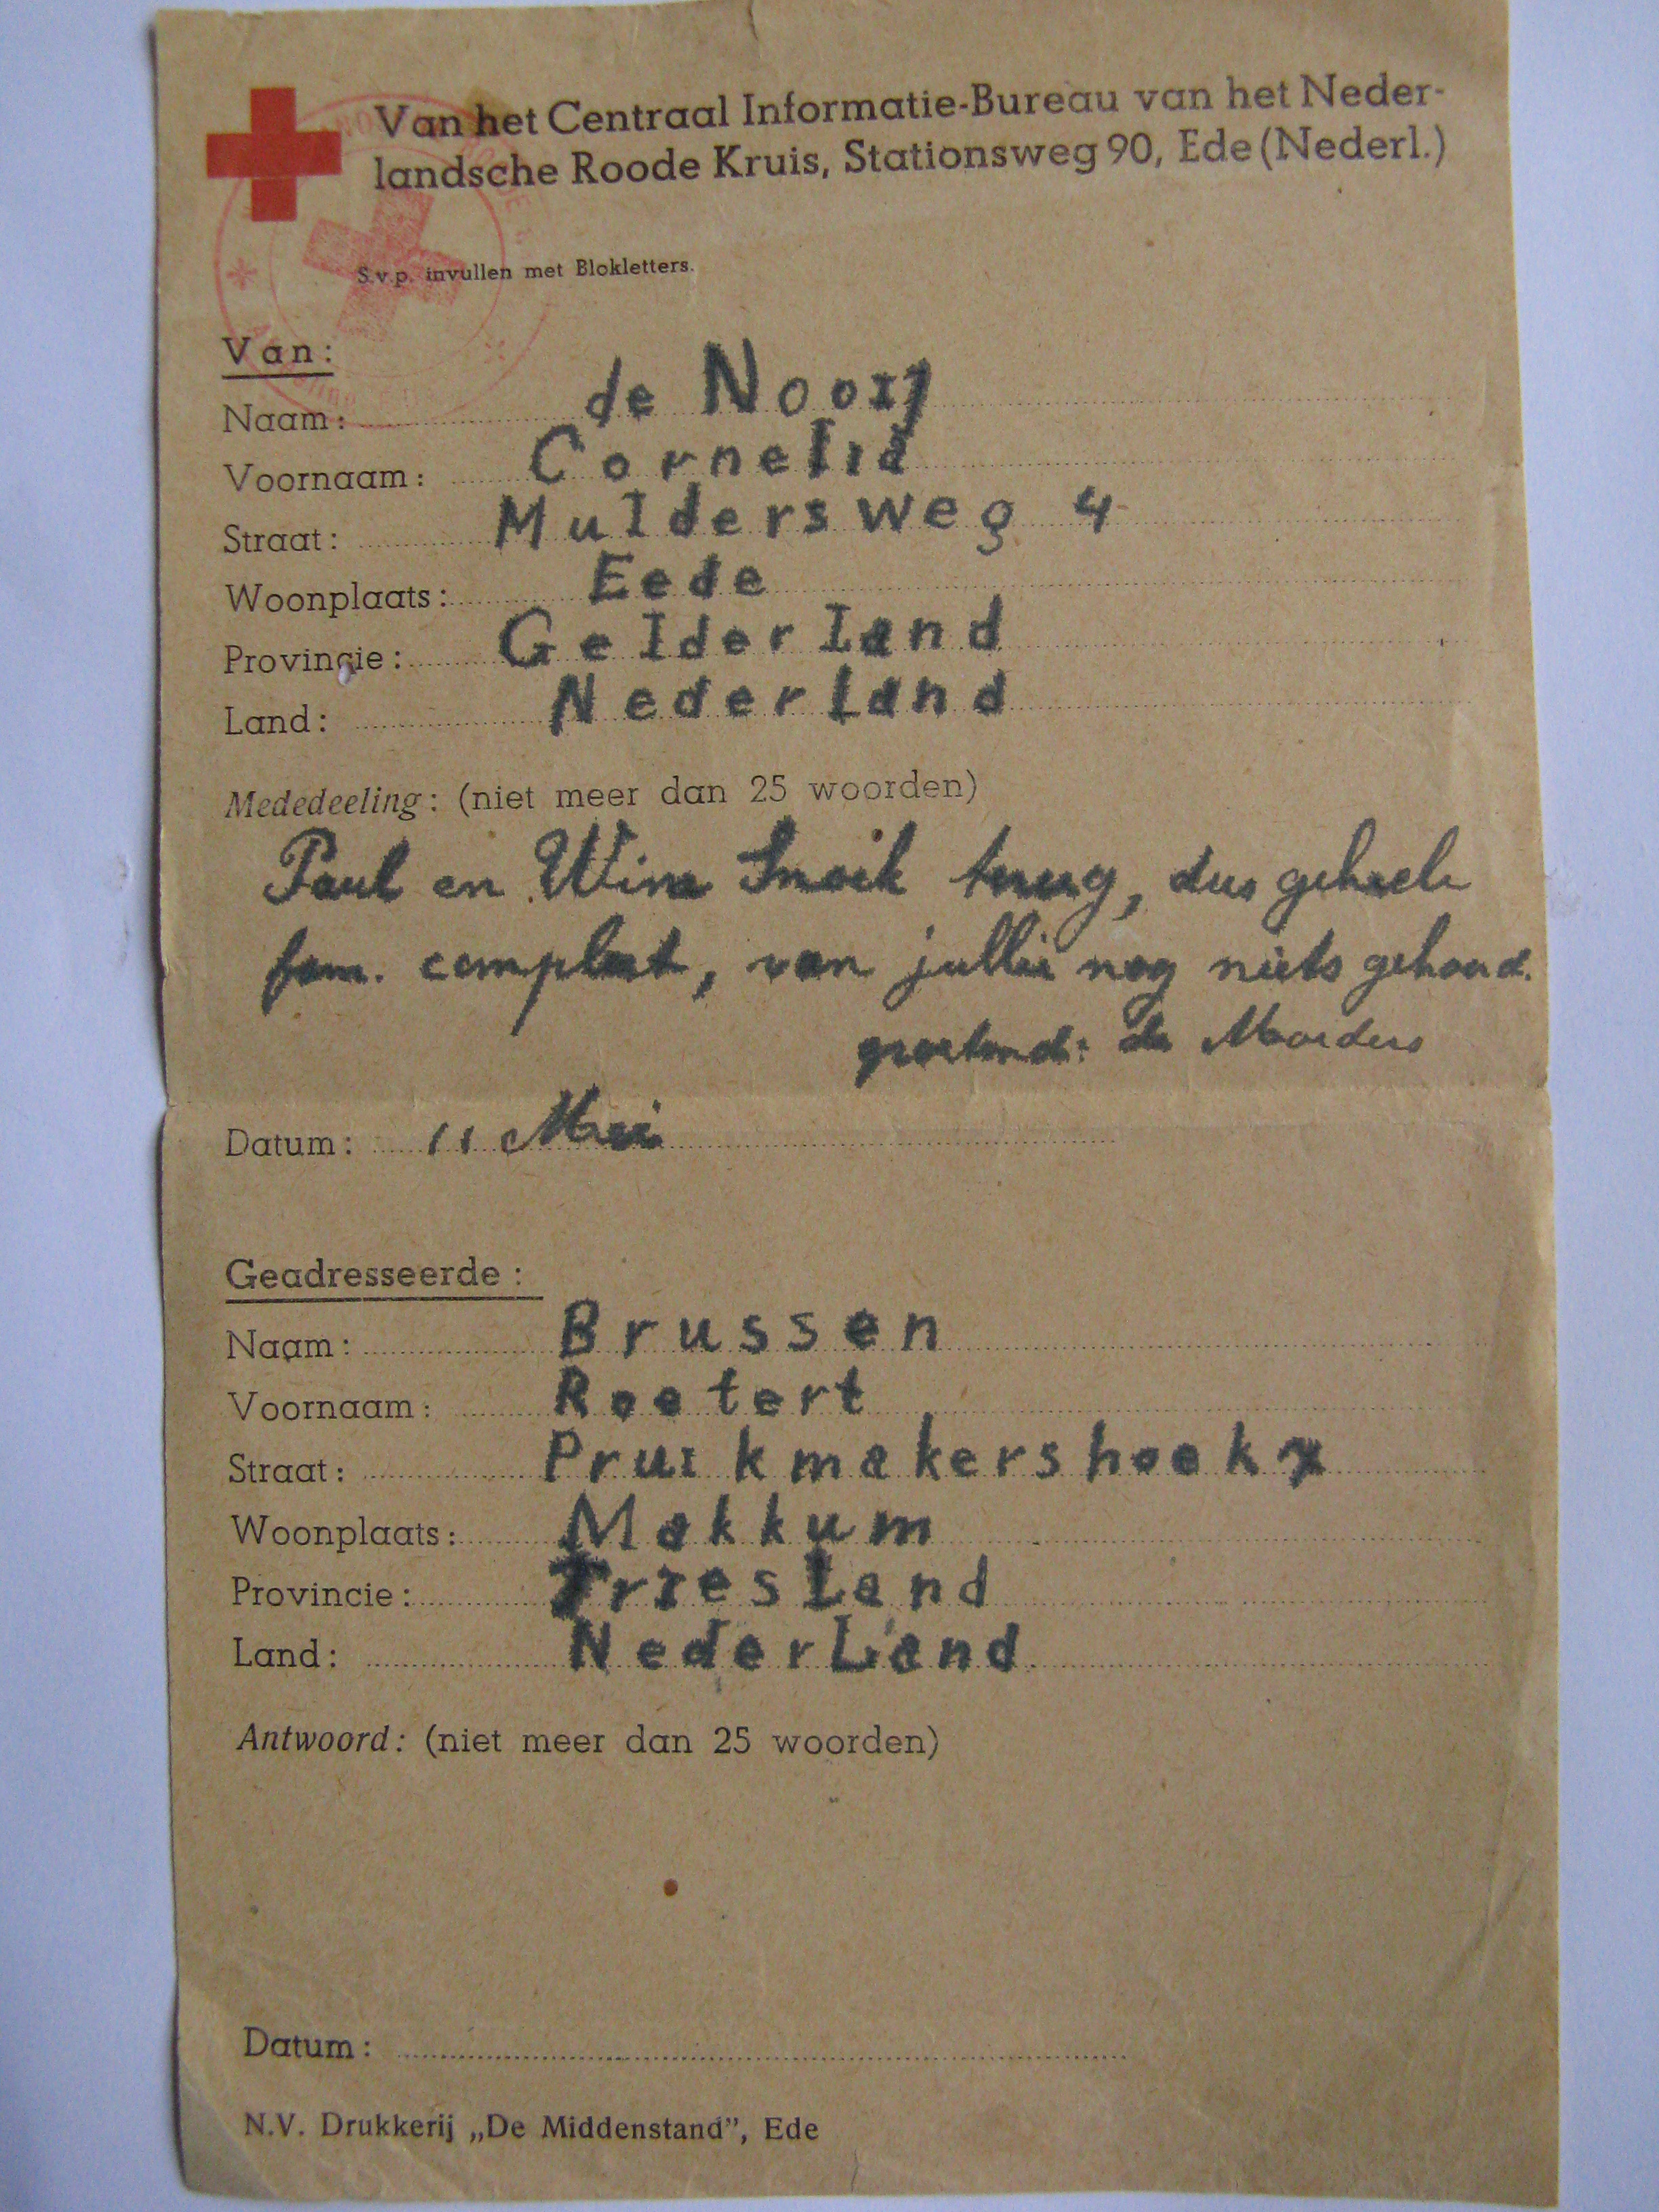 Van het Centraal Informatie-Bureau van het Neder-
landsche Roode Kruis, Stationsweg 90, Ede (Nederl.)
S.v.p. invullen met Blokletters.
Van:
Naam: de Nooij
Voornaam: Cornelia
Straat: Muldersweg 4
Woonplaats: Eede
Provincie: Gelderland
Land: Nederland
Mededeeling: (niet meer dan 25 woorden)
Paul en Wim Snoek terug, dus geheele
fam. compleet, van jullie nog niets gehoord.
groetend: de
Datum: 11 Mei
Geadresseerde:
Naam: Brussen
Voornaam: Roetert
Straat: Pruikmakershoek
Woonplaats: Makkum
Provincie: Friesland
Land: NederLand
Antwoord: (niet meer dan 25 woorden)
Datum:
N.V. Drukkerij „De Middenstand”, Ede